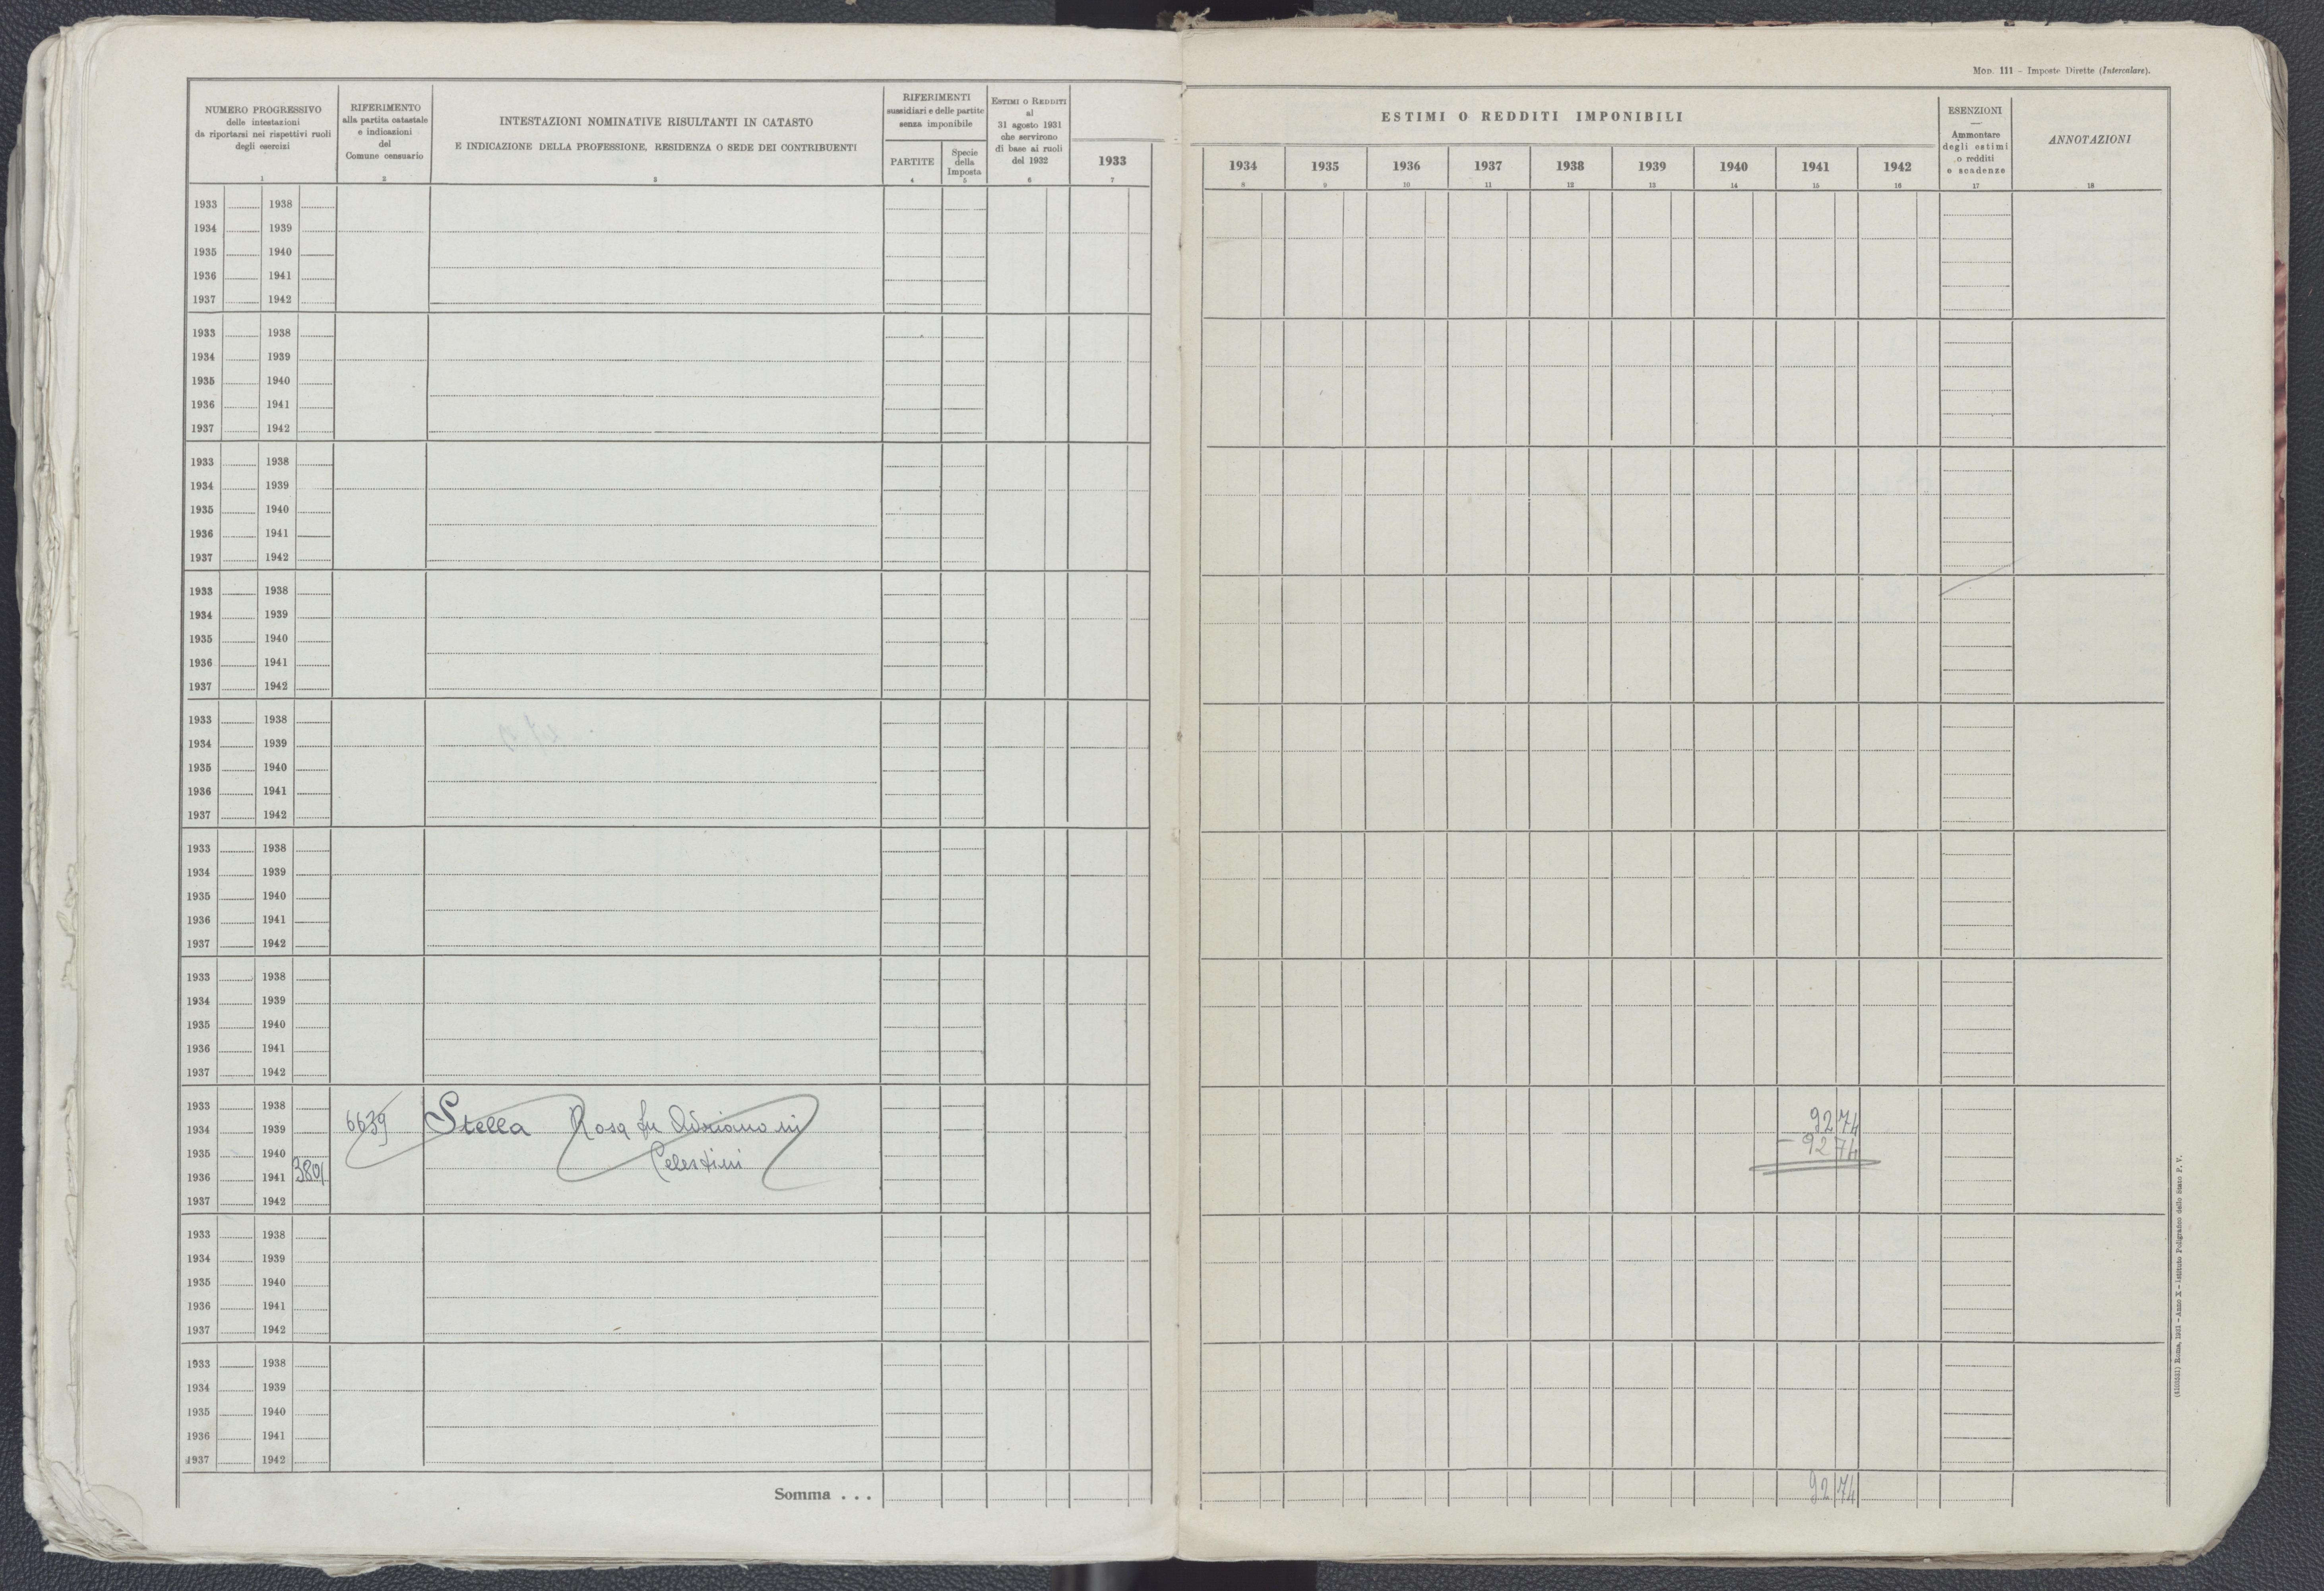 MOD. 111 – Imposte Dirette (Intercalare).
NUMERO PROGRESSIVO
delle intestazioni
da riportarsi nei rispettivi ruoli
degli esercizi
1
RIFERIMENTO
alla partita catastale
e indicazioni
del
Comune censuario
2
INTESTAZIONI NOMINATIVE RISULTANTI IN CATASTO
E INDICAZIONE DELLA PROFESSIONE, RESIDENZA O SEDE DEI CONTRIBUENTI
3
RIFERIMENTI
sussidiari e delle partite
senza imponibile
PARTITE
4
Specie
della
Imposta
5
ESTIMI O REDDITI
al
31 agosto 1931
che servirono
di base ai ruoli
del 1932
6
1933
7
ESTIMI O REDDITI IMPONIBILI
1934 1935 1936 1937 1938 1939 1940 1941 1942
8 9 10 11 12 13 14 15 16
ESENZIONI
—
Ammontare
degli estimi
o redditi
o scadenze
17
ANNOTAZIONI
18
1933 1938
1934 1939
1935 1940
1936 1941
1937 1942
1933 1938
1934 1939
1935 1940
1936 1941
1937 1942
1933 1938
1934 1939
1935 1940
1936 1941
1937 1942
1933 1938
1934 1939
1935 1940
1936 1941
1937 1942
1933 1938
1934 1939
1935 1940
1936 1941
1937 1942
1933 1938
1934 1939
1935 1940
1936 1941
1937 1942
1933 1938
1934 1939
1935 1940
1936 1941
1937 1942
1933 1938
1934 1939 6639 Stella Rosa fu in 92 74
1935 1940 Celestini – 92 74
1936 1941 3801
1937 1942
1933 1938
1934 1939
1935 1940
1936 1941
1937 1942
1933 1938
1934 1939
1935 1940
1936 1941
1937 1942
Somma . . . 92 74
(4103531) Roma, 1931 – Anno X – Istituto Poligrafico dello Stato P. V.